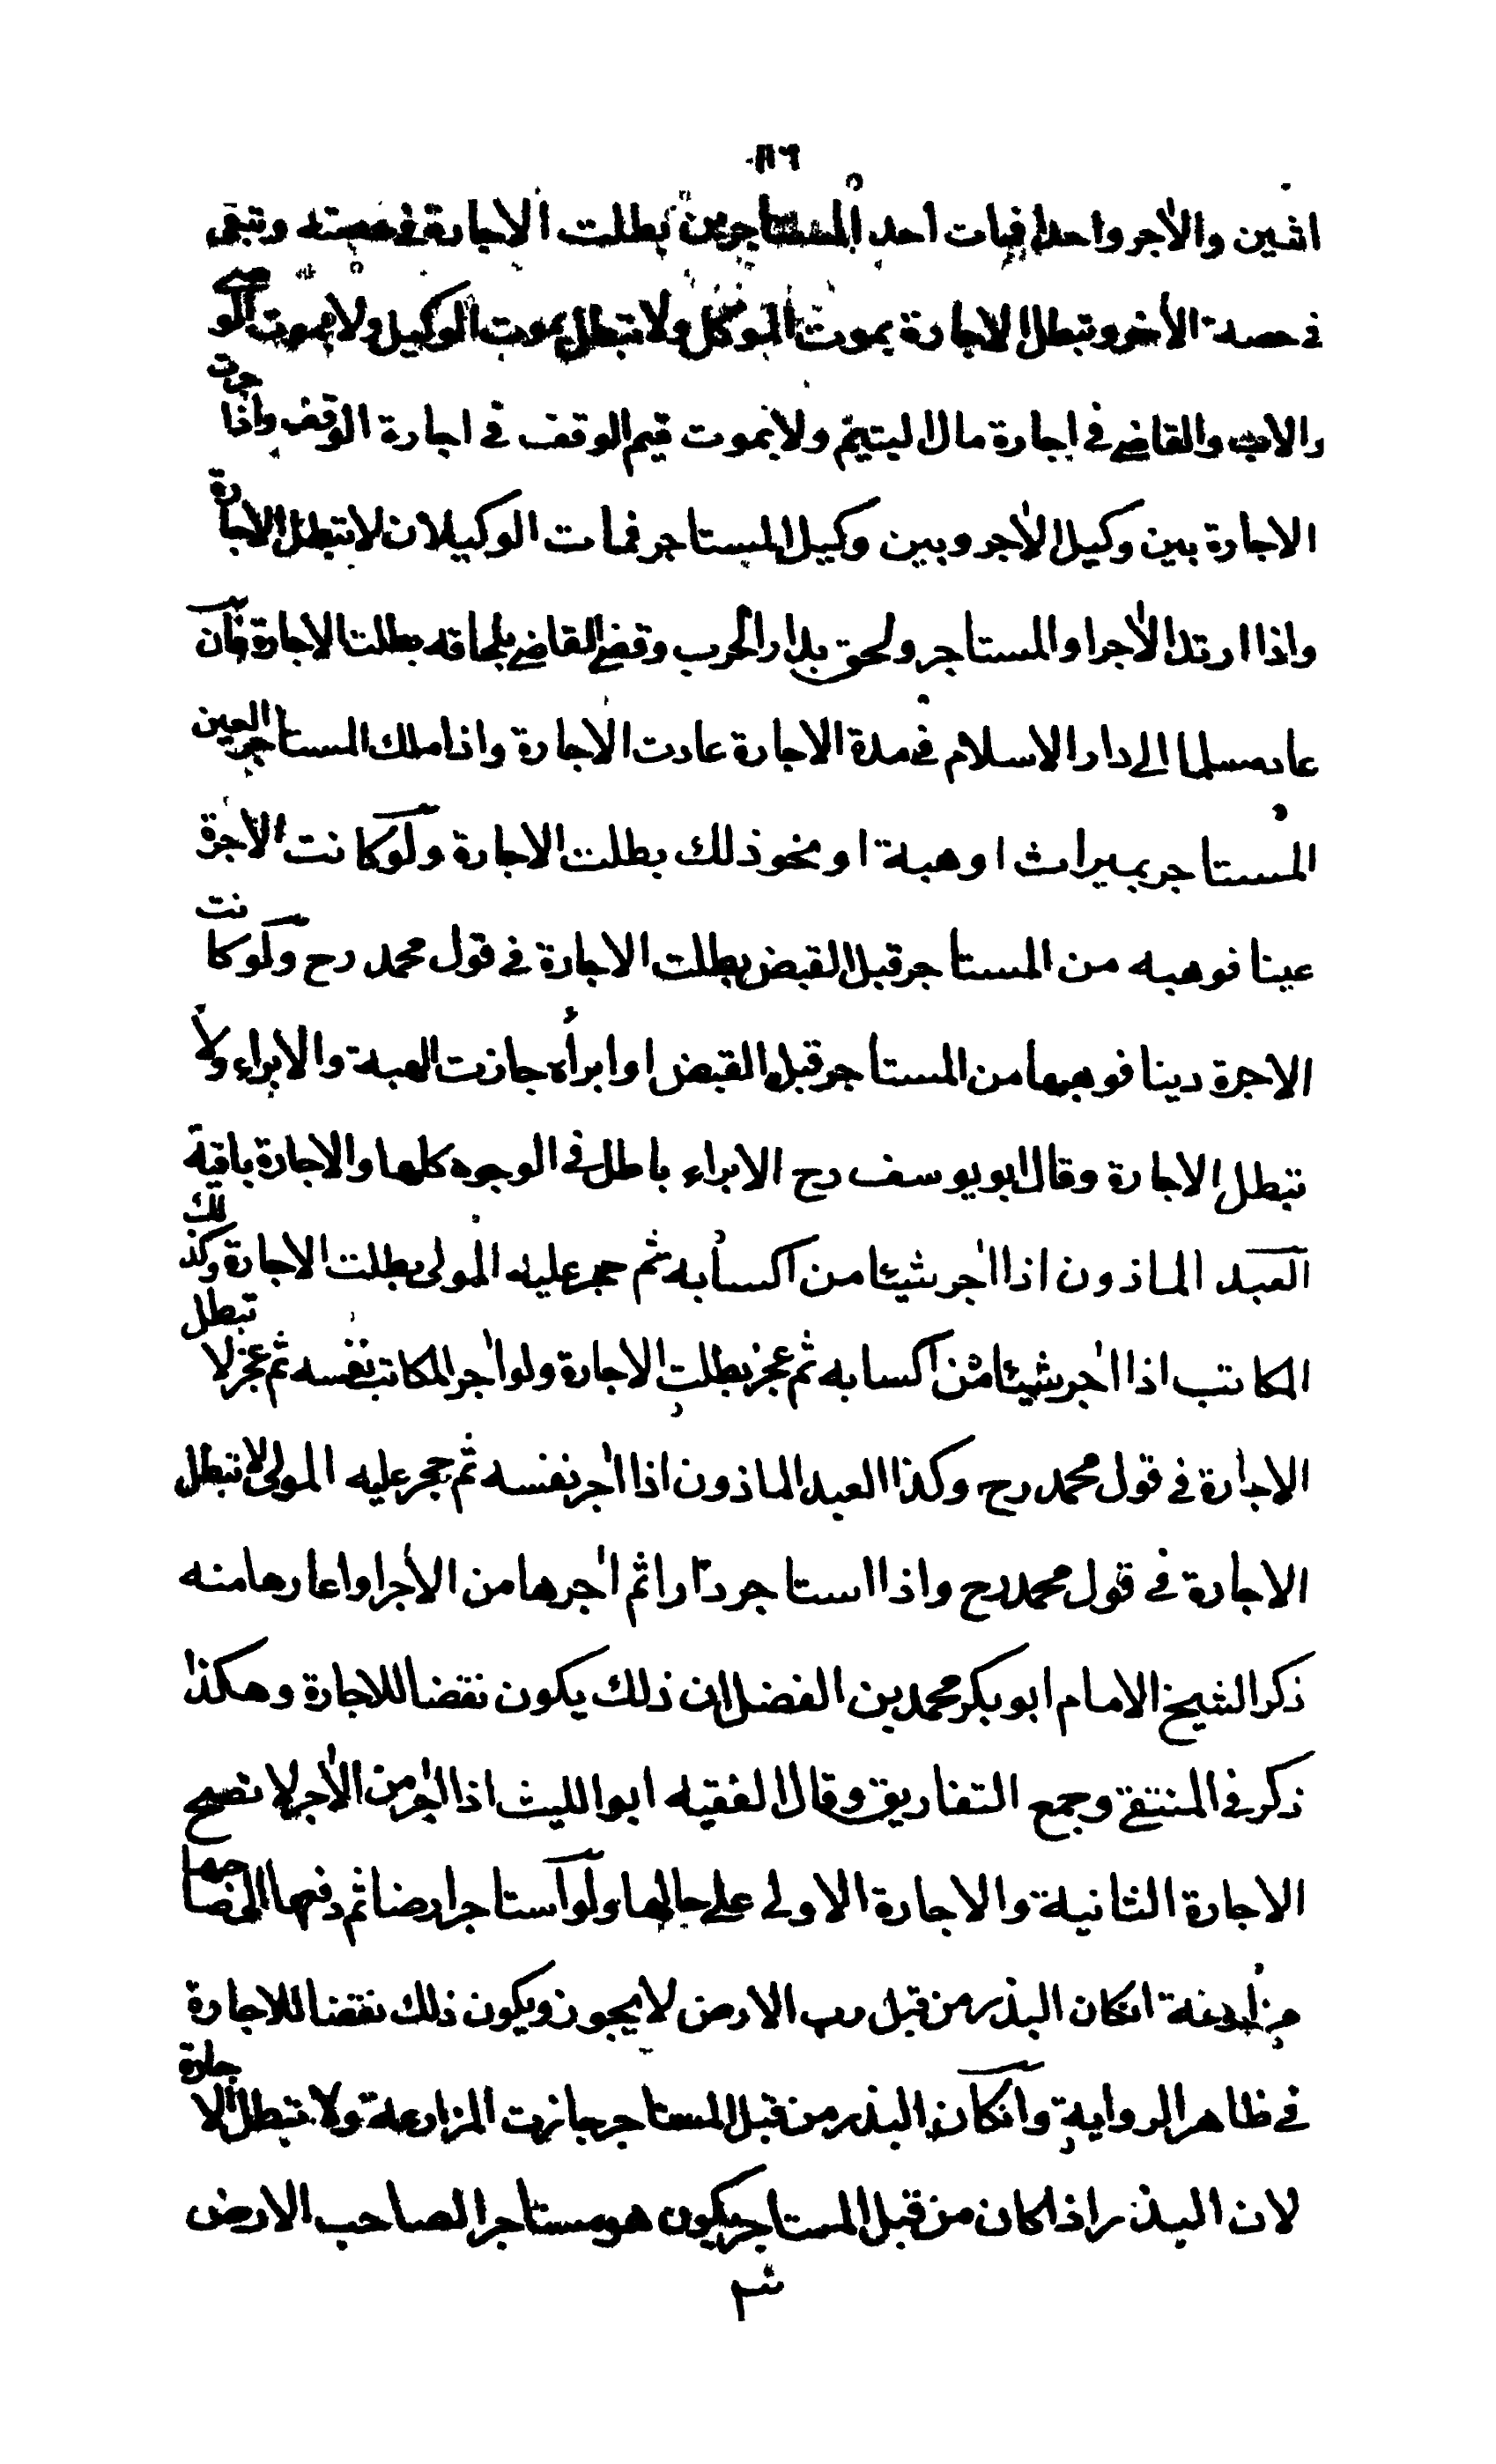 ١١٦
اثنين والآجر واحدا فمات احد المستاجرين بطلت الاجارة في حصته وتبقى
في حصة الآخر وتبطل الاجارة بموت الموكل ولا تبطل بموت الوكيل ولا بموت الوصي
والاب والقاضي في اجارة مال اليتيم ولا بموت قيم الوقف في اجارة الوقف واذا جرت
الاجارة بين وكيل الآجر وبين وكيل المستاجر فمات الوكيلان لا تبطل الاجارة
واذا ارتد الآجر او المستاجر ولحق بدار الحرب وقضى القاضي بلحاقه بطلت الاجارة فان
عاد مسلما الى دار الاسلام في مدة الاجارة عادت الاجارة واذا ملك المستاجر العين
المستاجر بميراث او هبة او نحو ذلك بطلت الاجارة ولو كانت الاجرة
عينا فوهبه من المستاجر قبل القبض بطلت الاجارة في قول محمد رح ولو كانت
الاجرة دينا فوهبها من المستاجر قبل القبض او ابرأه جازت الهبة والابراء ولا
تبطل الاجارة وقال ابو يوسف رح الابراء باطل في الوجوه كلها والاجارة باقية
العبد الماذون اذا اٰجر شيئا من اكسابه ثم حجر عليه المولى بطلت الاجارة وكذلك
المكاتب اذا اٰجر شيئا من اكسابه ثم عجز بطلت الاجارة ولو اٰجر المكاتب نفسه ثم عجز لا تبطل
الاجارة في قول محمد رح وكذا العبد الماذون اذا اٰجر نفسه ثم حجر عليه المولى لا تبطل
الاجارة في قول محمد رح واذا استاجر دارا ثم اٰجرها من الآجر او اعارها منه
ذكر الشيخ الامام ابو بكر محمد بن الفضل ان ذلك يكون نقضا للاجارة وهكذا
ذكر في المنتقى وجمع التفاريق وقال الفقيه ابو الليث اذا اٰجر من الآجر لا تصح
الاجارة الثانية والاجارة الاولى على حالها ولو استاجر ارضا ثم دفعها الى صاحبها
مزارعة انكان البذر من قبل رب الارض لا يجوز ويكون ذلك نقضا للاجارة
في ظاهر الرواية وانكان البذر من قبل المستاجر جازت المزارعة ولا تبطل الاجارة
لان البذر اذا كان من قبل المستاجر يكون هو مستاجرا لصاحب الارض
ثم